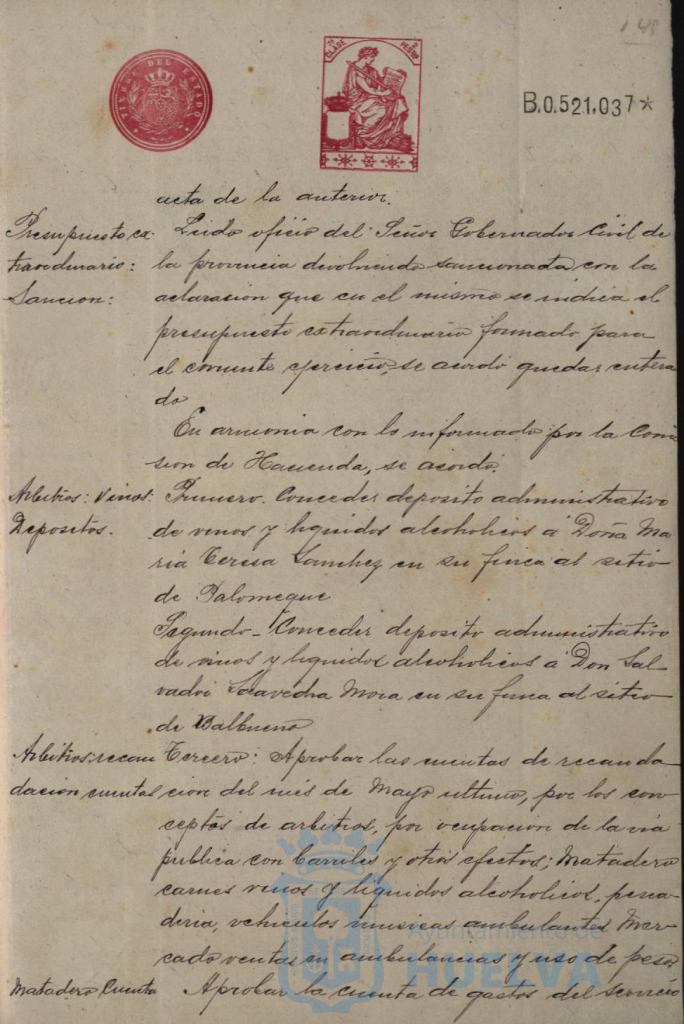 148
TIMBRE DEL ESTADO
7ª CLASE 2 PESTAS
B.0.521.037*
acta de la anterior.
Presupuesto ex- Leido oficio del Señor Gobernador Civil de
traordinario: la provincia devolviendo sancionada con la
Sancion: aclaracion que en el mismo se indica el
presupuesto extraordinario formado para
el corriente ejercicio, se acordó quedar entera
do
En armonia con lo informado por la Comi
sion de Hacienda, se acordó:
Arbitrios: Vinos: Primero. Conceder deposito administrativo
Depositos. de vinos y liquidos alcoholicos á Doña Ma
ria Teresa Sanchez en su finca al sitio
de Palomeque
Segundo- Conceder deposito administrativo
de vinos y liquidos alcoholicos á Don Sal
vador Saavedra Mora en su finca al sitio
de Balbueno
Arbitrios: recau Tercero: Aprobar las cuentas de recauda
dacion cuentas cion del mes de Mayo ultimo, por los con
ceptos de arbitrios, por ocupacion de la via
publica con barriles y otros efectos; Matadero
carnes vinos y liquidos alcoholicos, pesca
deria, vehiculos musicas ambulantes Mer-
cado ventas en ambulancias y uso de pesas
Matadero Cuenta Aprobar la cuenta de gastos del servicio
Ayuntamiento de
HUELVA